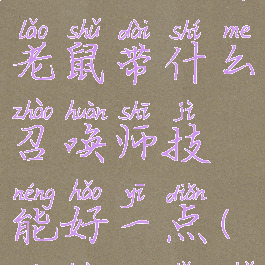 lǎo shǔ dài shí me
老鼠带什么
zhào huàn shī jì
召唤师技
néng hǎo yī diǎn
能好一点(